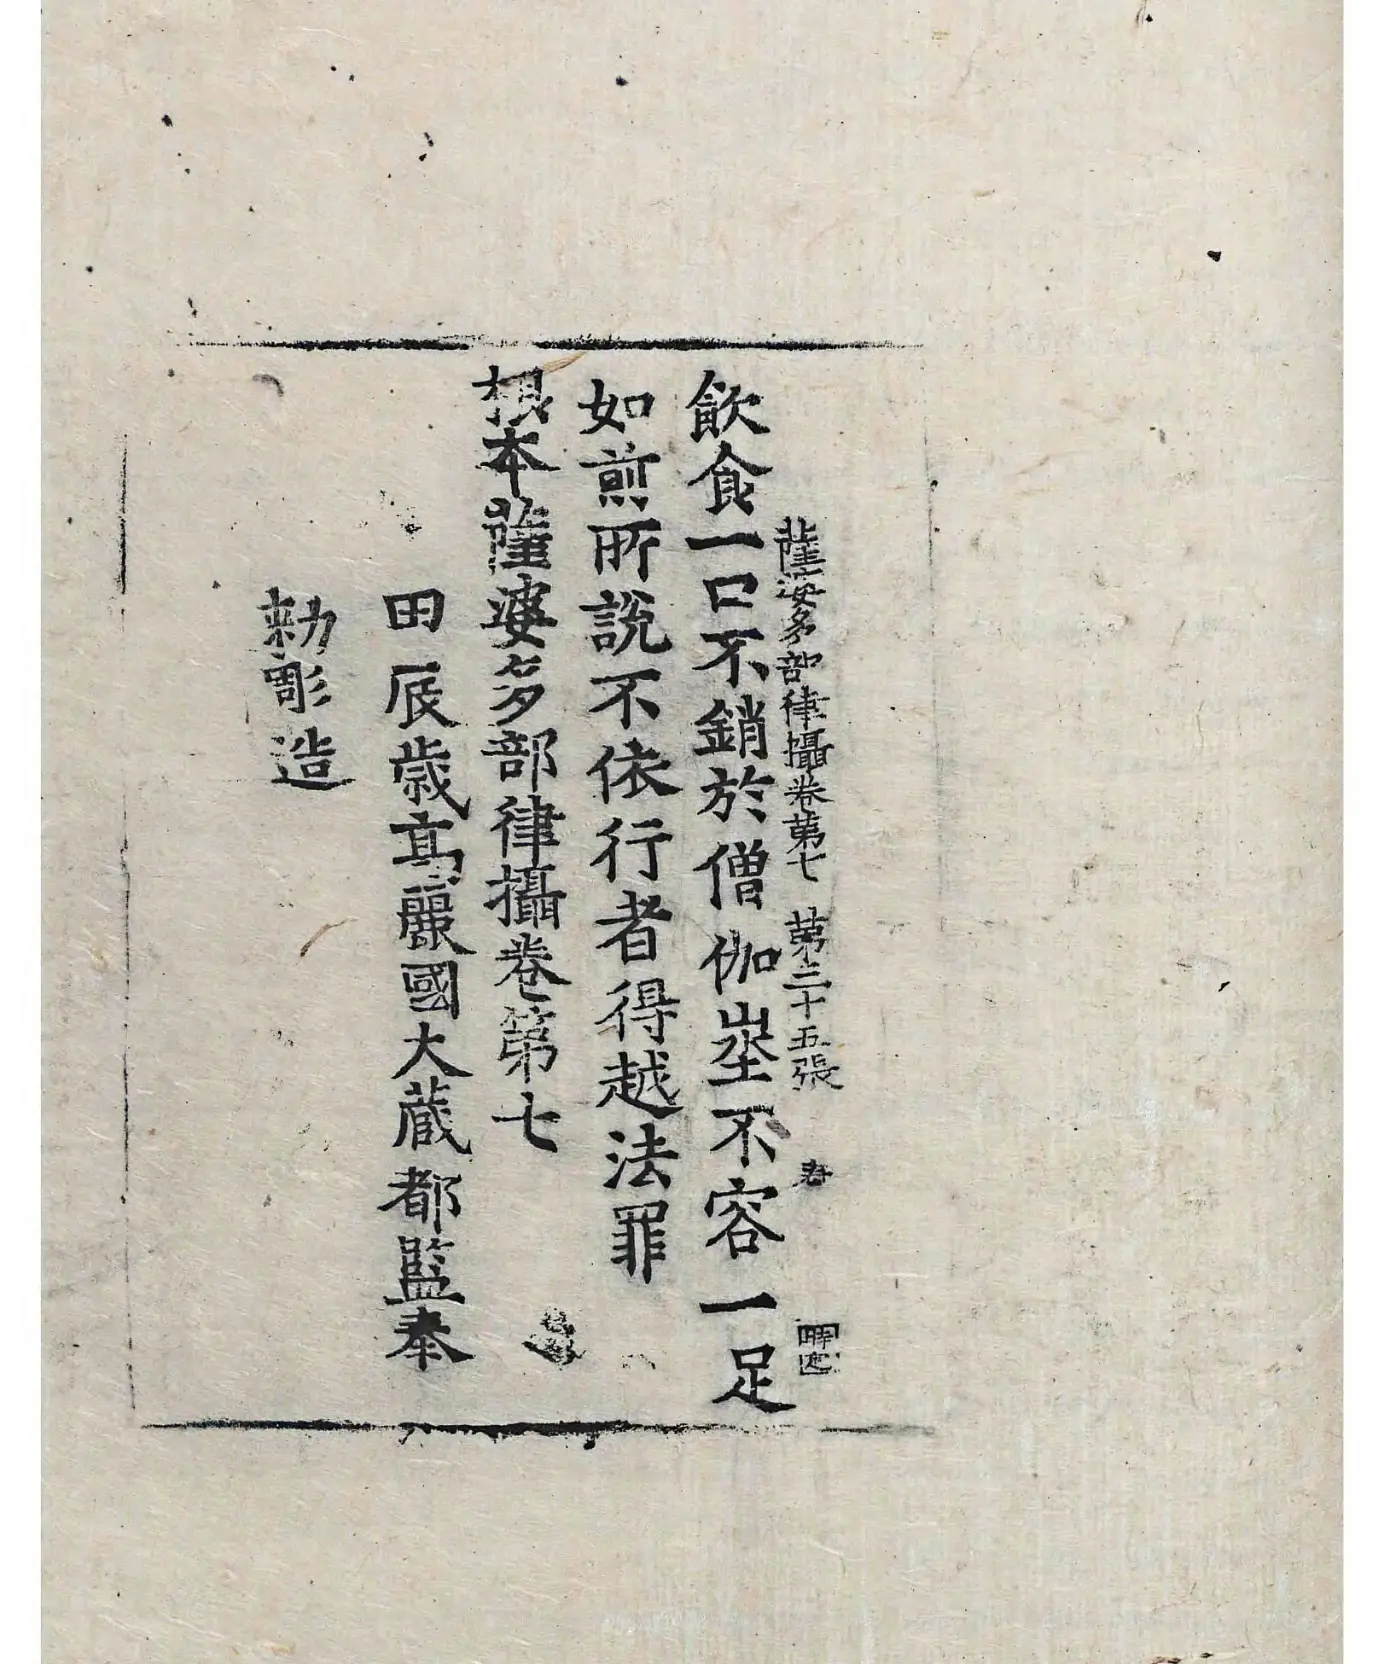 薩婆多部律攝卷第七 第三十五張 春
飮食一口不銷於僧伽坐不容一足
如煎所說不依行者得越法罪
根本薩婆多部律攝卷第七
田辰歲高麗國大藏都監奉
勅彫造